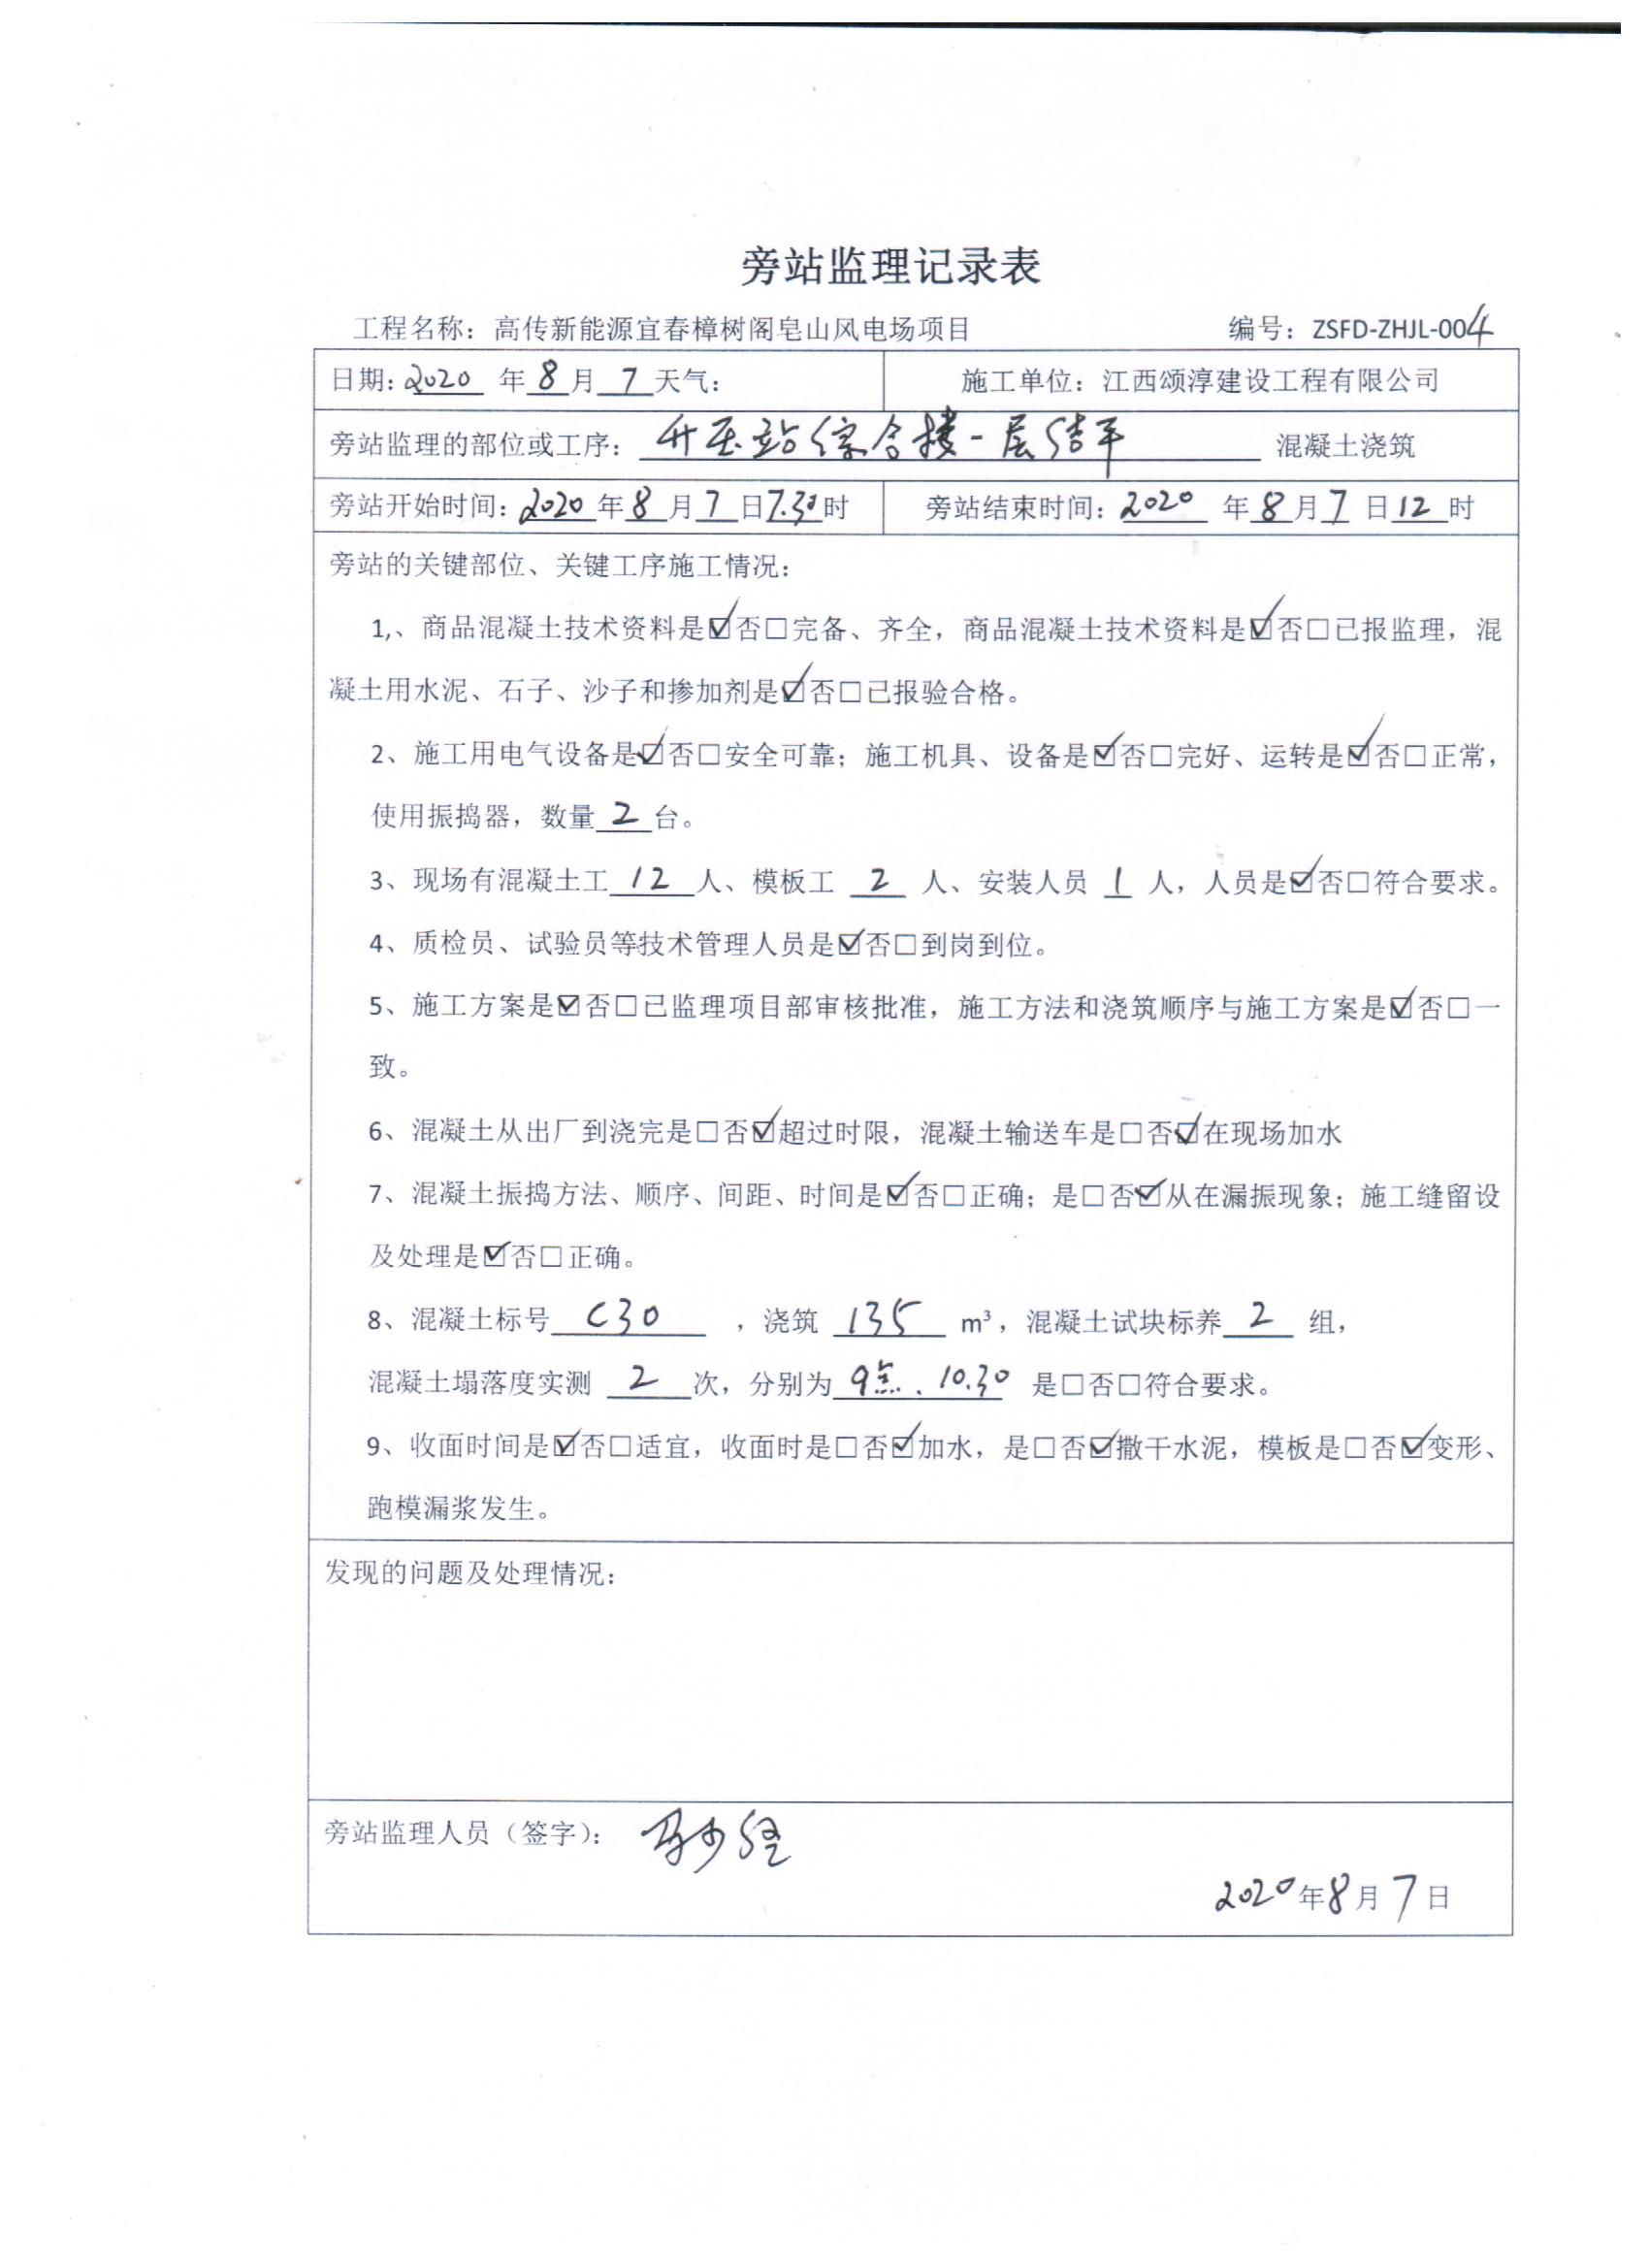 旁站监理记录表
工程名称：高传新能源宜春樟树阁皂山风电场项目 编号：ZSFD-ZHJL-004
日期：2020 年 8 月 7 天气： 施工单位：江西颂淳建设工程有限公司
旁站监理的部位或工序：升压站综合楼一层结平 混凝土浇筑
旁站开始时间：2020 年 8 月 7 日 7.30 时 旁站结束时间：2020 年 8 月 7 日 12 时
旁站的关键部位、关键工序施工情况：
1,、商品混凝土技术资料是☑否□完备、齐全，商品混凝土技术资料是☑否□已报监理，混
凝土用水泥、石子、沙子和掺加剂是☑否□已报验合格。
2、施工用电气设备是☑否□安全可靠；施工机具、设备是☑否□完好、运转是☑否□正常，
使用振捣器，数量 2 台。
3、现场有混凝土工 12 人、模板工 2 人、安装人员 1 人，人员是☑否□符合要求。
4、质检员、试验员等技术管理人员是☑否□到岗到位。
5、施工方案是☑否□已监理项目部审核批准，施工方法和浇筑顺序与施工方案是☑否□一
致。
6、混凝土从出厂到浇完是□否☑超过时限，混凝土输送车是□否☑在现场加水
7、混凝土振捣方法、顺序、间距、时间是☑否□正确；是□否☑从在漏振现象；施工缝留设
及处理是☑否□正确。
8、混凝土标号 C30 ，浇筑 135 m³，混凝土试块标养 2 组，
混凝土塌落度实测 2 次，分别为 9点、10.30 是□否□符合要求。
9、收面时间是☑否□适宜，收面时是□否☑加水，是□否☑撒干水泥，模板是□否☑变形、
跑模漏浆发生。
发现的问题及处理情况：
旁站监理人员（签字）：
2020 年 8 月 7 日